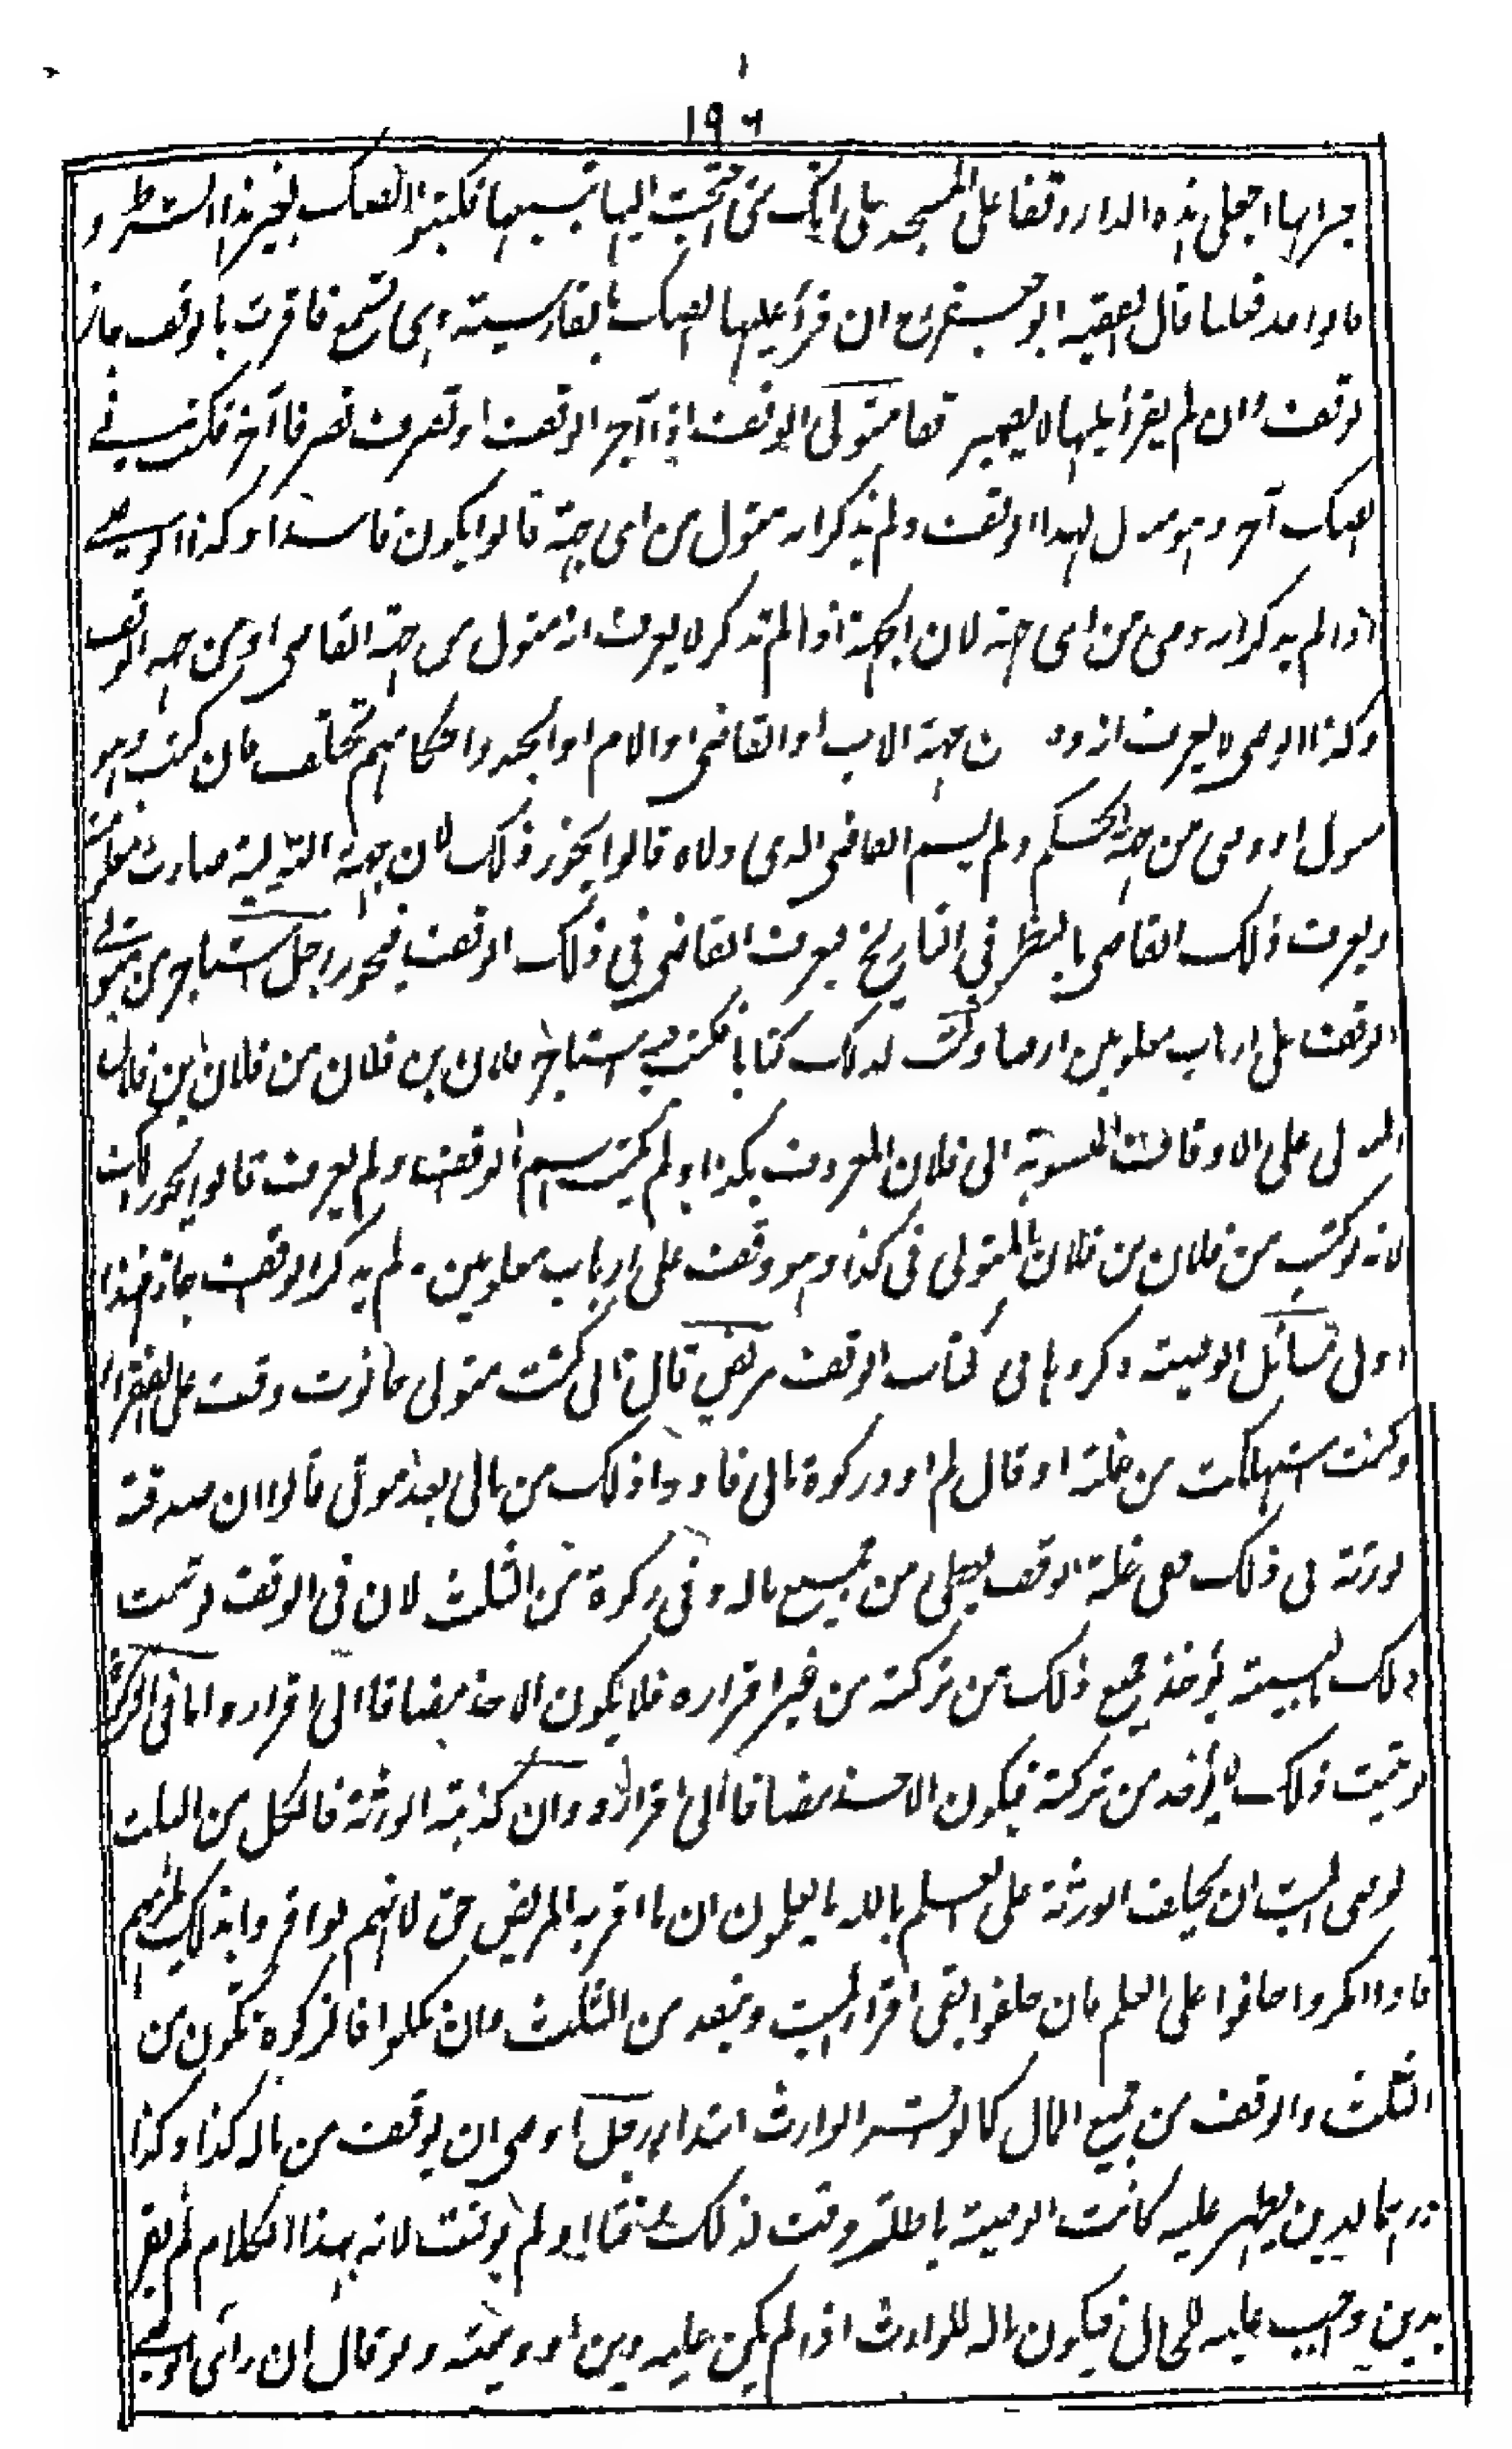 ١٩٦
جيرانها اجعلي هذه الدار وقفا على المسجد على انك متى احتجت اليها تبيعيها فكتبوا الصك بغير هذا الشرط و
قال الفقيه ابو جعفر ان قرأ عليها الصك بالفارسية وهي تسمع فاقرت بالوقف جاز
الوقف وان لم يقرأ عليها لا يصير وقفا متولى الوقف اذا آجر الوقف او تصرف تصرفا آخر فكتب في
الصك آجر وهو متول لهذا الوقف ولم يذكر انه متول من اى جهة قالوا يكون فاسدا وكذا الوصي
اذا لم يذكر انه وصى من اى جهة لان الجهة اذا لم تذكر لا يعرف انه متول من جهة القاضى او من جهة الواقف
وكذا الوصى لا يعرف انه من جهة الاب او القاضى او الام او الجد واحكامهم تختلف فان كتب وهو
متول او وصى من جهة الحكم ولم يسم القاضى الذى ولاه قالوا يجوز ذلك لان جهة التولية صارت معلومة
ويعرف ذلك القاضى بالنظر فى التاريخ فيعرف القاضى فى ذلك الوقت فيجوز رجل استأجر من متولى
الوقف على ارباب معلومين ارضا وكتب لذلك كتابا فكتب فيه استأجر فلان بن فلان من فلان بن فلان
المتولى على الاوقاف المنسوبة الى فلان المعروف بكذا ولم يكتب اسم الواقف ولم يعرف قالوا يجوز ذلك
لانه لو كتب من فلان بن فلان المتولى فى كذا وهو وقف على ارباب معلومين ولم يذكر الواقف جاز فهذا
اولى مسائل الوصية ذكروها فى كتاب الوقف مريض قال انى كنت متولى حانوت وقف على الفقراء
وكنت استهلكت من غلته او قال لم اؤد زكوة مالى فادوا ذلك من مالى بعد موتى قالوا ان صدقته
الورثة فى ذلك ففى غلة الوقف يعطى من جميع ماله وفى زكوة من الثلث لان فى الوقف لو ثبت
ذلك بالبينة يؤخذ جميع ذلك من تركته من غير اقراره فلا يكون الاخذ مضافا الى اقراره واما فى الزكوة
لو ثبت ذلك لا يؤخذ من تركته فيكون الاخذ مضافا الى اقراره وان كذبته الورثة فالكل من الثلث
لوصى الميت ان يحلف الورثة على العلم بالله ما يعلمون ان ما اقر به المريض حق لانهم لو اقروا بذلك لزمهم
فاذا انكروا حلفوا على العلم فان حلفوا بقى اقرار الميت وينفذ من الثلث وان نكلوا فالزكوة تكون من
الثلث والوقف من جميع المال كما لو اقر الوارث ابتداء رجل اوصى ان يوقف من ماله كذا وكذا
درهما لدين يظهر عليه كانت الوصية باطلة وقت لذلك وقتا او لم يوقت لانه بهذا الكلام لم يقر
بدين وجب عليه للحال فيكون ماله للوارث اذا لم يكن عليه دين او وصية ولو قال ان رأى الوصي